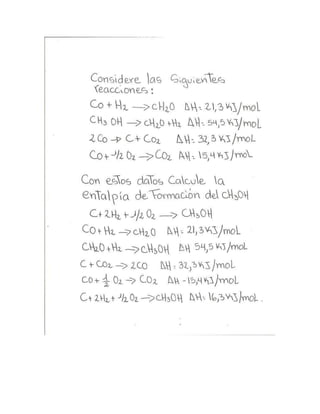 Considere las Siguientes
reacciones:
Co + H2 → cH2O ΔH: 21,3 KJ/moL
CH3 OH → cH2O + H2 ΔH: 54,5 KJ/moL
2 Co → C + Co2 ΔH: 32,3 KJ/moL
Co + 1/2 O2 → CO2 ΔH: 15,4 KJ/moL
Con estos datos Calcule la
entalpía de Formación del CH3OH
C + 2H2 + 1/2 O2 → CH3OH
CO + H2 → cH2O ΔH: 21,3 KJ/moL
CH2O + H2 → cH3OH ΔH 54,5 KJ/moL
C + CO2 → 2CO ΔH: 32,3 KJ/moL
CO + 1/2 O2 → CO2 ΔH -15,4 KJ/moL
C + 2H2 + 1/2 O2 → CH3OH ΔH: 16,3 KJ/moL.